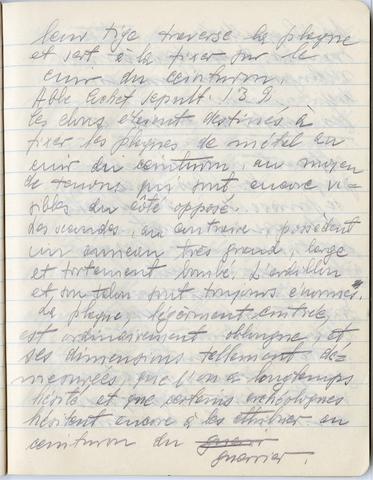 leur tige traverse la plaque
et sert à la fixer sur le
cuir du ceinturon.
Abbé Cochet sepult. 139
Les clous étaient destinés à
fixer les plaques de métal au
cuir du ceinturon, au moyen
de tenons qui sont encore vi-
sibles du côté opposé
des secondes, au contraire, possèdent
un anneau très grand, large
et fortement bombé. L'ardillon
et son talon sont toujours énormes".
La plaque, légèrement cintrée,
est ordinairement oblongue, et
ses dimensions tellement dé-
mesurées, que l'on a longtemps
hésité et que certains archéologues
hésitent encore à les attribuer au
ceinturon du guerr
guerrier.